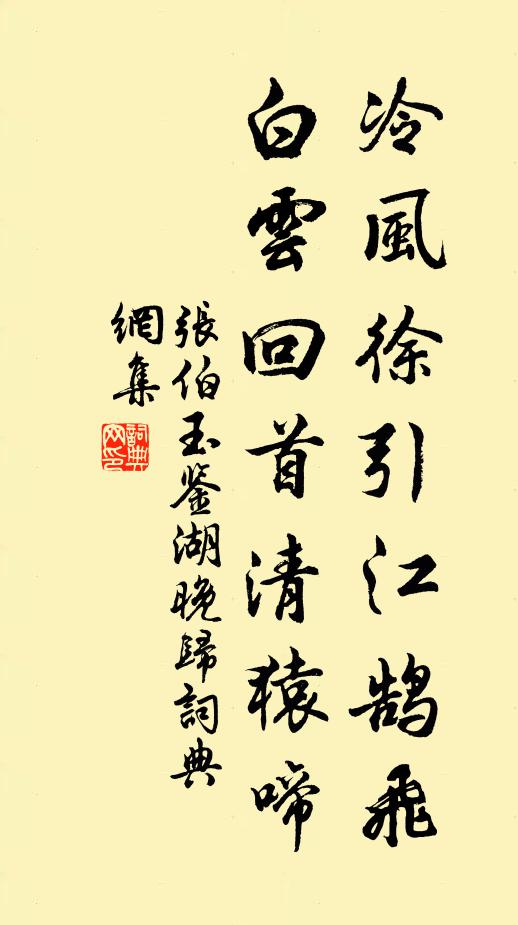 冷風徐引江鵠飛
白雲回首清猿啼
張伯玉鉴湖晚歸詞典
網集
詞典网印